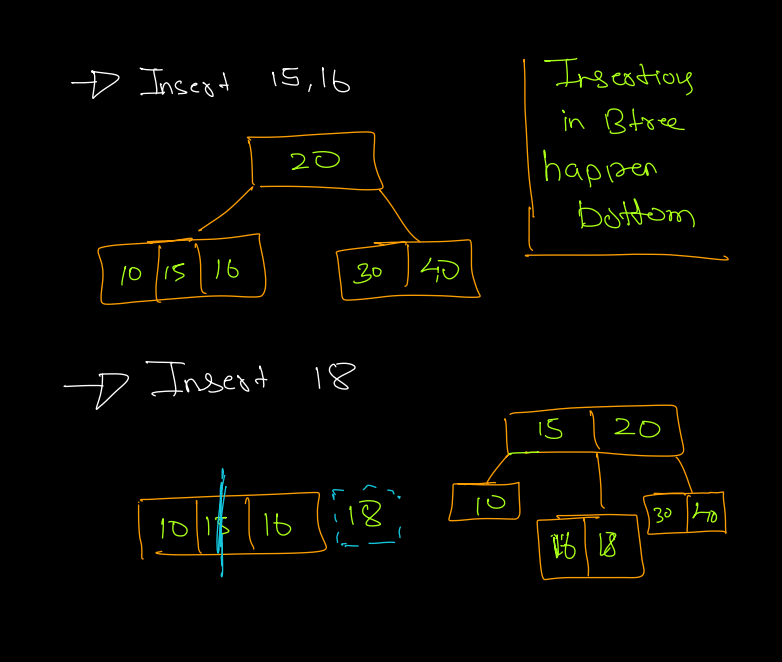 → Insert 15,16
20
10 15 16
30 40
Insertions
in Btree
happen
bottom
→ Insert 18
10 15 16 18
15 20
10
16 18
30 40